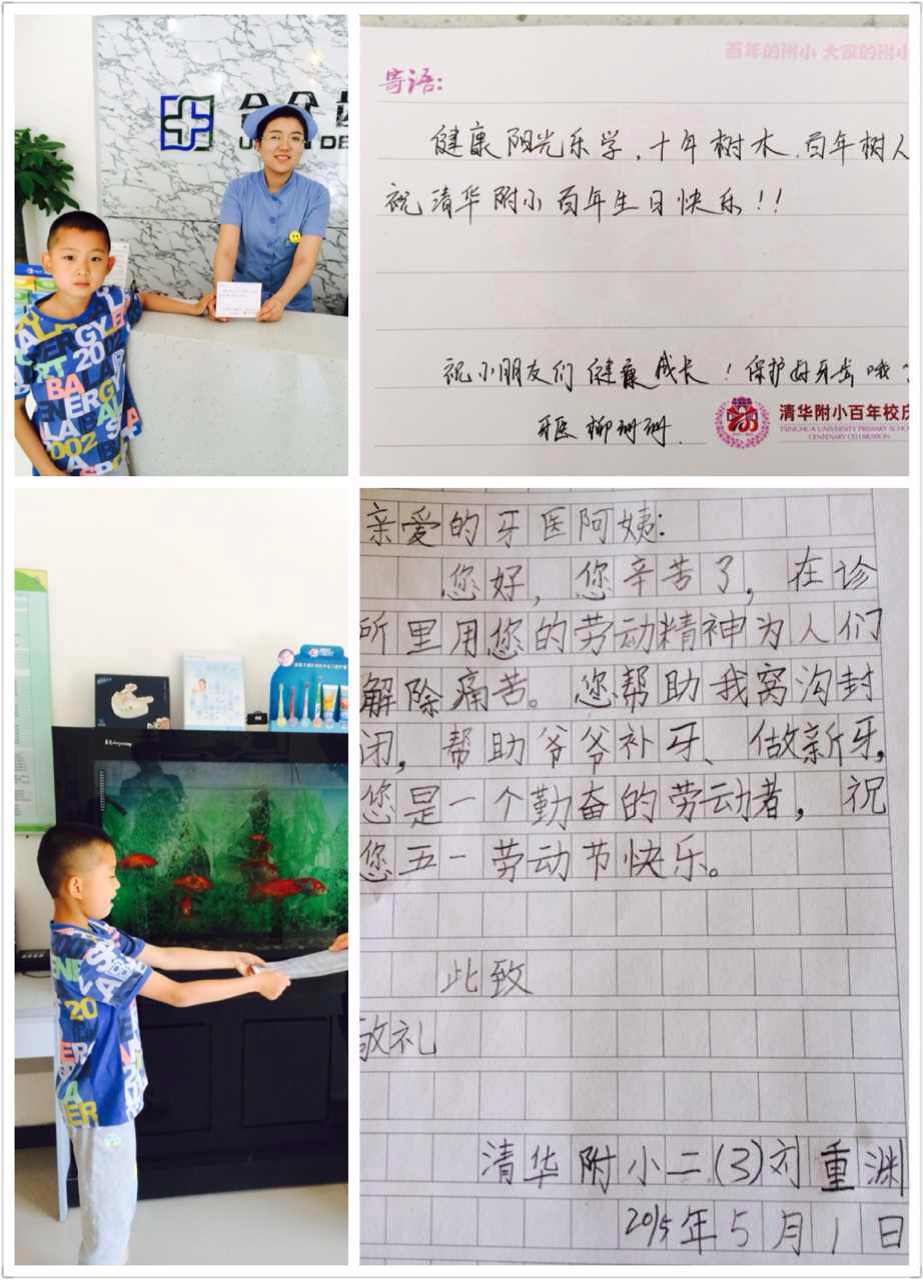 合众
百年的附小 大家的附小
寄语:
健康阳光乐学,十年树木,百年树人
祝清华附小百年生日快乐!!
祝小朋友们健康成长!保护好牙齿哦
牙医 柳珊珊.
清华附小百年校庆
TSINGHUA UNIVERSITY PRIMARY SCHOO
CENTENARY CELEBRATION
BALL
ENERGY
2002
亲爱的牙医阿姨:
您好,您辛苦了,在诊
所里用您的劳动精神为人们
解除痛苦。您帮助我窝沟封
闭,帮助爷爷补牙、做新牙,
您是一个勤奋的劳动者,祝
您五一劳动节快乐。
此致
敬礼
清华附小二(3)刘重渊
2015年5月1日